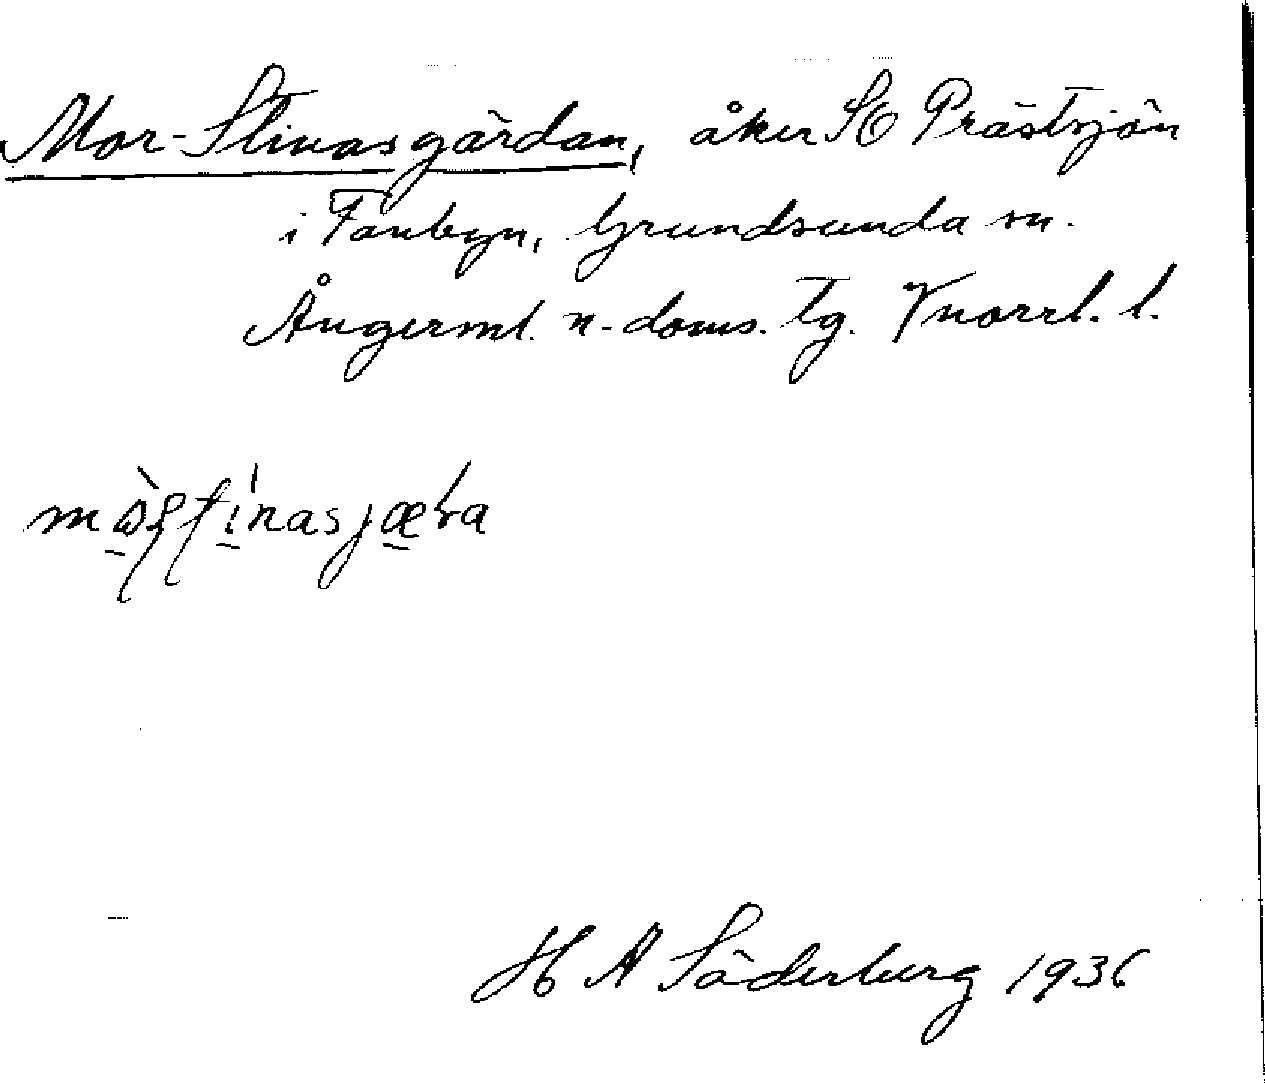 Mor-Stinasgärdan, åker SO Prästsjön
i Fanbyn, Grundsunda sn.
Ångerml. n. doms. tg. Vnorrl. l.
H A Söderberg 1936